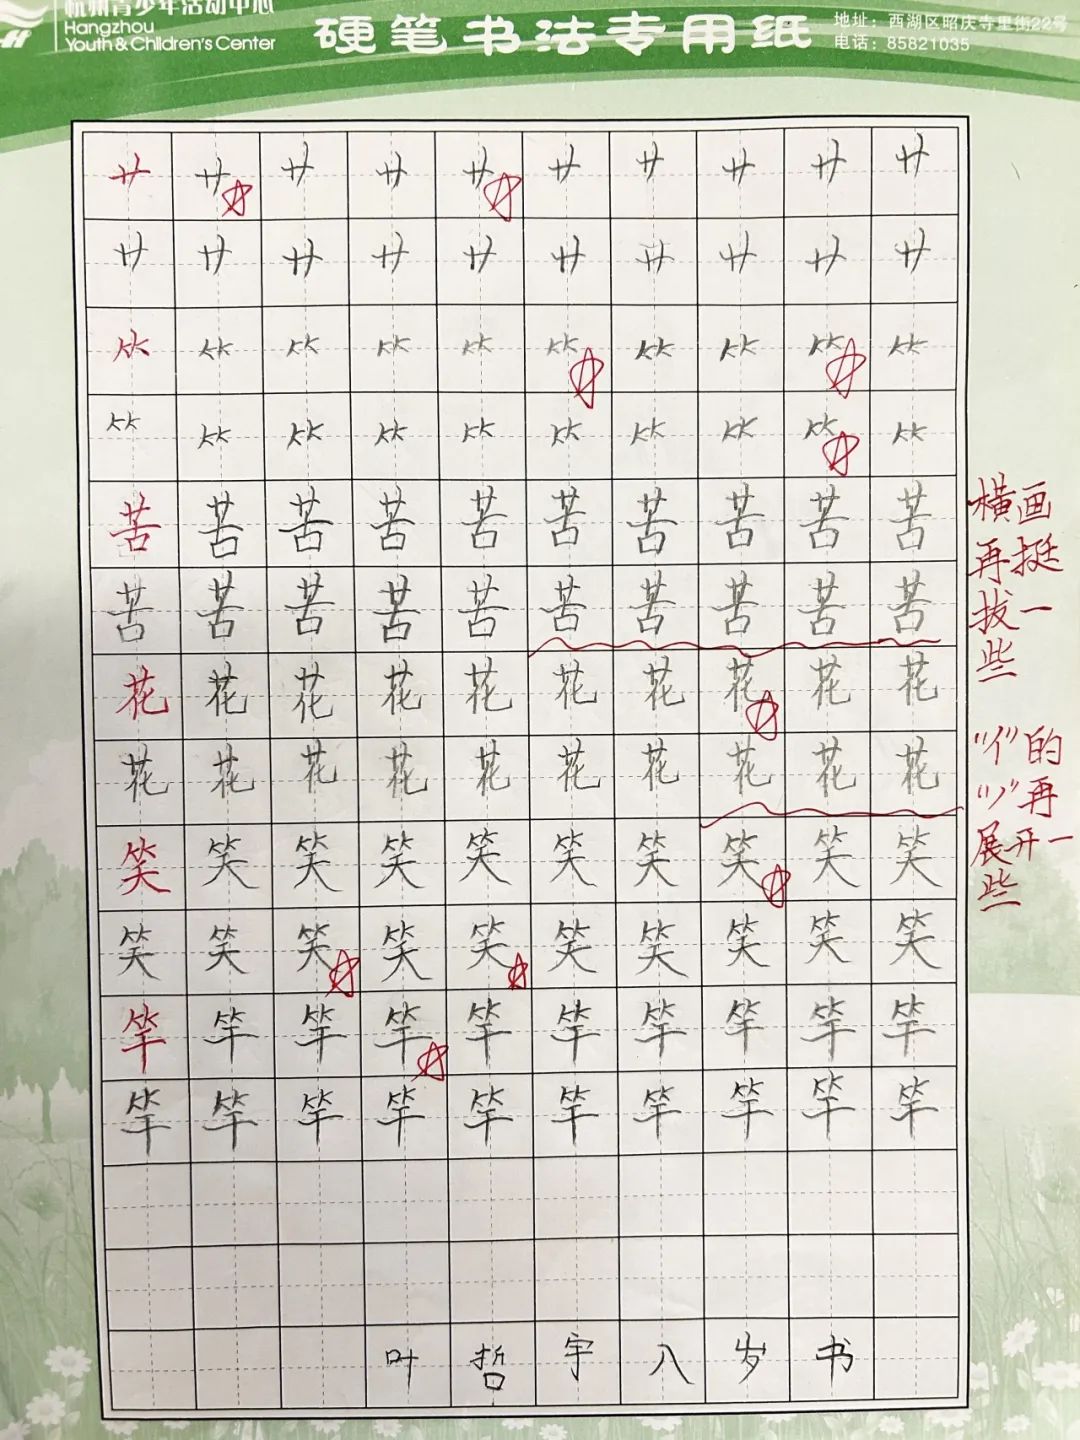 杭州青少年活动中心
Hangzhou
Youth & Children's Center
硬笔书法专用纸
地址：西湖区昭庆寺里街22号
电话：85821035
艹 艹 艹 艹 艹 艹 艹 艹 艹 艹
艹 艹 艹 艹 艹 艹 艹 艹 艹 艹
⺮ ⺮ ⺮ ⺮ ⺮ ⺮ ⺮ ⺮ ⺮ ⺮
⺮ ⺮ ⺮ ⺮ ⺮ ⺮ ⺮ ⺮ ⺮ ⺮
苦 苦 苦 苦 苦 苦 苦 苦 苦 苦
苦 苦 苦 苦 苦 苦 苦 苦 苦 苦
花 花 花 花 花 花 花 花 花 花
花 花 花 花 花 花 花 花 花 花
笑 笑 笑 笑 笑 笑 笑 笑 笑 笑
笑 笑 笑 笑 笑 笑 笑 笑 笑 笑
竿 竿 竿 竿 竿 竿 竿 竿 竿 竿
竿 竿 竿 竿 竿 竿 竿 竿 竿 竿
叶 哲 宇 八 岁 书
横画
再挺
拔一
些
“亻”的
“丿”再
展开一
些